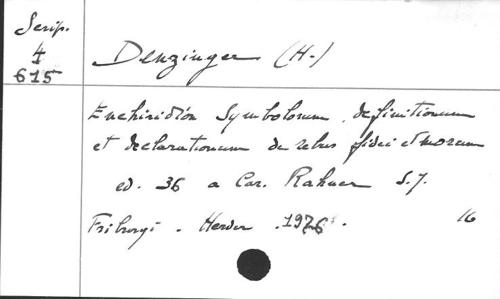 Scrip.
4
615
Denzinger (H.)
Enchiridión Symbolorum, definitionum
et declarationum de rebus fidei et morum
ed. 36 a Car. Rahner S.J.
Friburgi - Herder . 1976 .
16